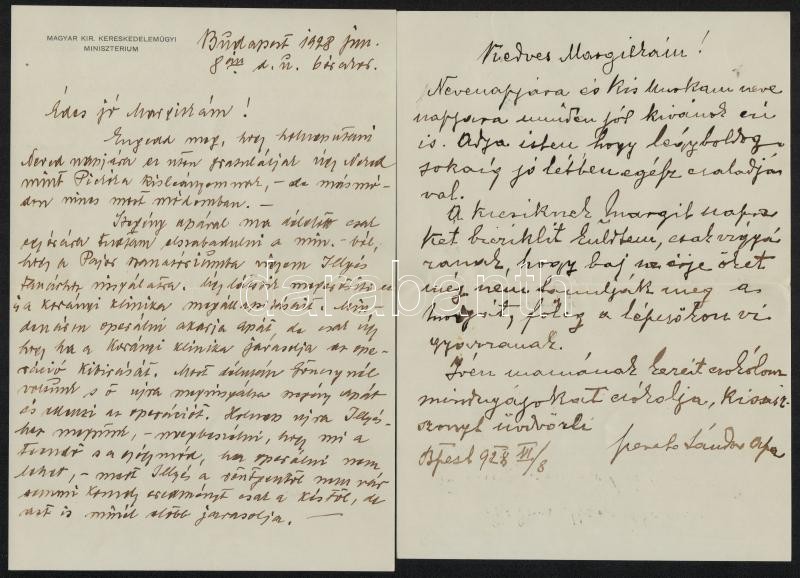 MAGYAR KIR. KERESKEDELEMÜGYI
MINISZTERIUM
Budapest 1928 jun.
8 án d. u. bécskor.
Édes jó Margitkám!
Engedd meg, hogy holnaputáni
Neved napjára ez uton gratuláljak úgy Neked
mint Picike kisleányomnak, – de másmó-
don nincs most módomban. –
Szegény apával ma délelőtt csak
ugy tudtam elszabadulni a min.-ból,
hogy a Pajor szanatóriumba vigyem Illyés
tanárhoz vizsgálatra.
és a Korányi klinika megállapítását. Min-
denáron operálni akarja apát, de csak úgy
hogy ha a Korányi klinika javasolja az ope-
ráció
voltunk s ő újra megvizsgálta szegény apát
és ellenzi az operációt. Holnap ujra Illyés-
hez megyünk, – megbeszélni, hogy mi a
teendő s a gyógymód, ha operálni nem
lehet, – mert Illyés a röntgentől nem vár
semmi komoly eredményt csak a késtől, de
azt is minél előbb javasolja. –
Kedves Margitkám!
Nevenapjára és kis unokám neve
napjára minden jót kivánok én
is. Adja isten hogy legyboldog
sokáig jó létben egész családjá
val.
A kicsiknek Margit napra
két biciklit küldtem, csak vigyá
zanak, hogy baj ne érje őket
még nem tanulják meg a
módját, főleg a lépcsőkön vi
gyázzanak.
Irén mamának kezeit csókolom
mindnyájokat csókolja, kisasz-
szonyt üdvözli
szerető Sándor Apa
Bpest 928 VI/8
darabanth